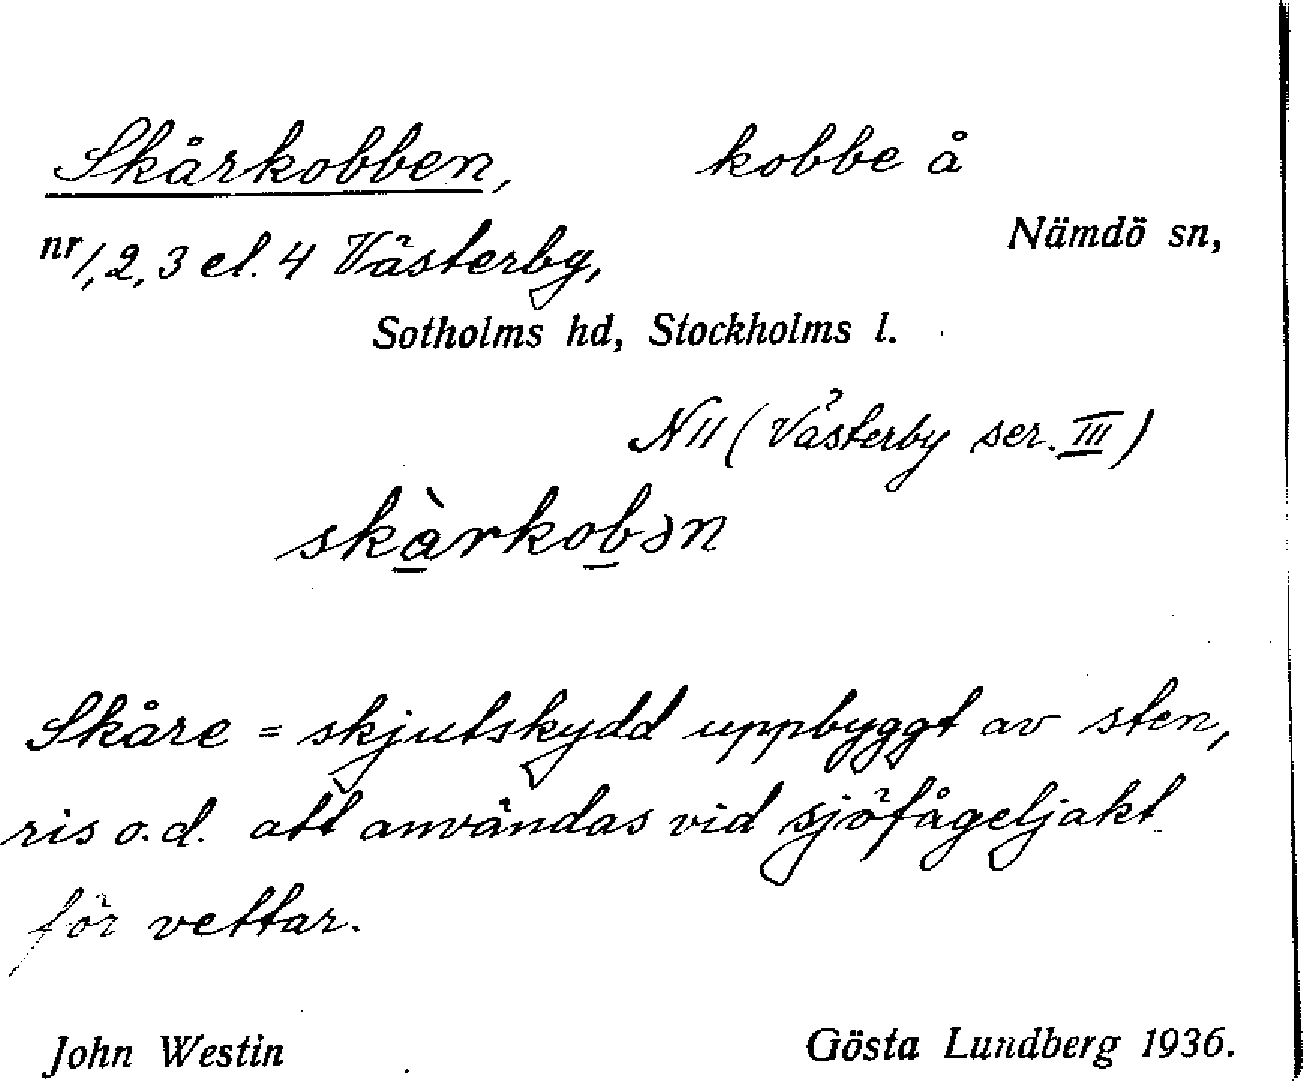 Skårkobben, kobbe å
nr 1, 2, 3 el. 4 Västerby, Nämdö sn,
Sotholms hd, Stockholms l.
N 11 (Västerby ser. III)
skàrkobən
Skåre = skjutskydd uppbyggt av sten,
ris o.d. att användas vid sjöfågeljakt
för vettar.
John Westin Gösta Lundberg 1936.